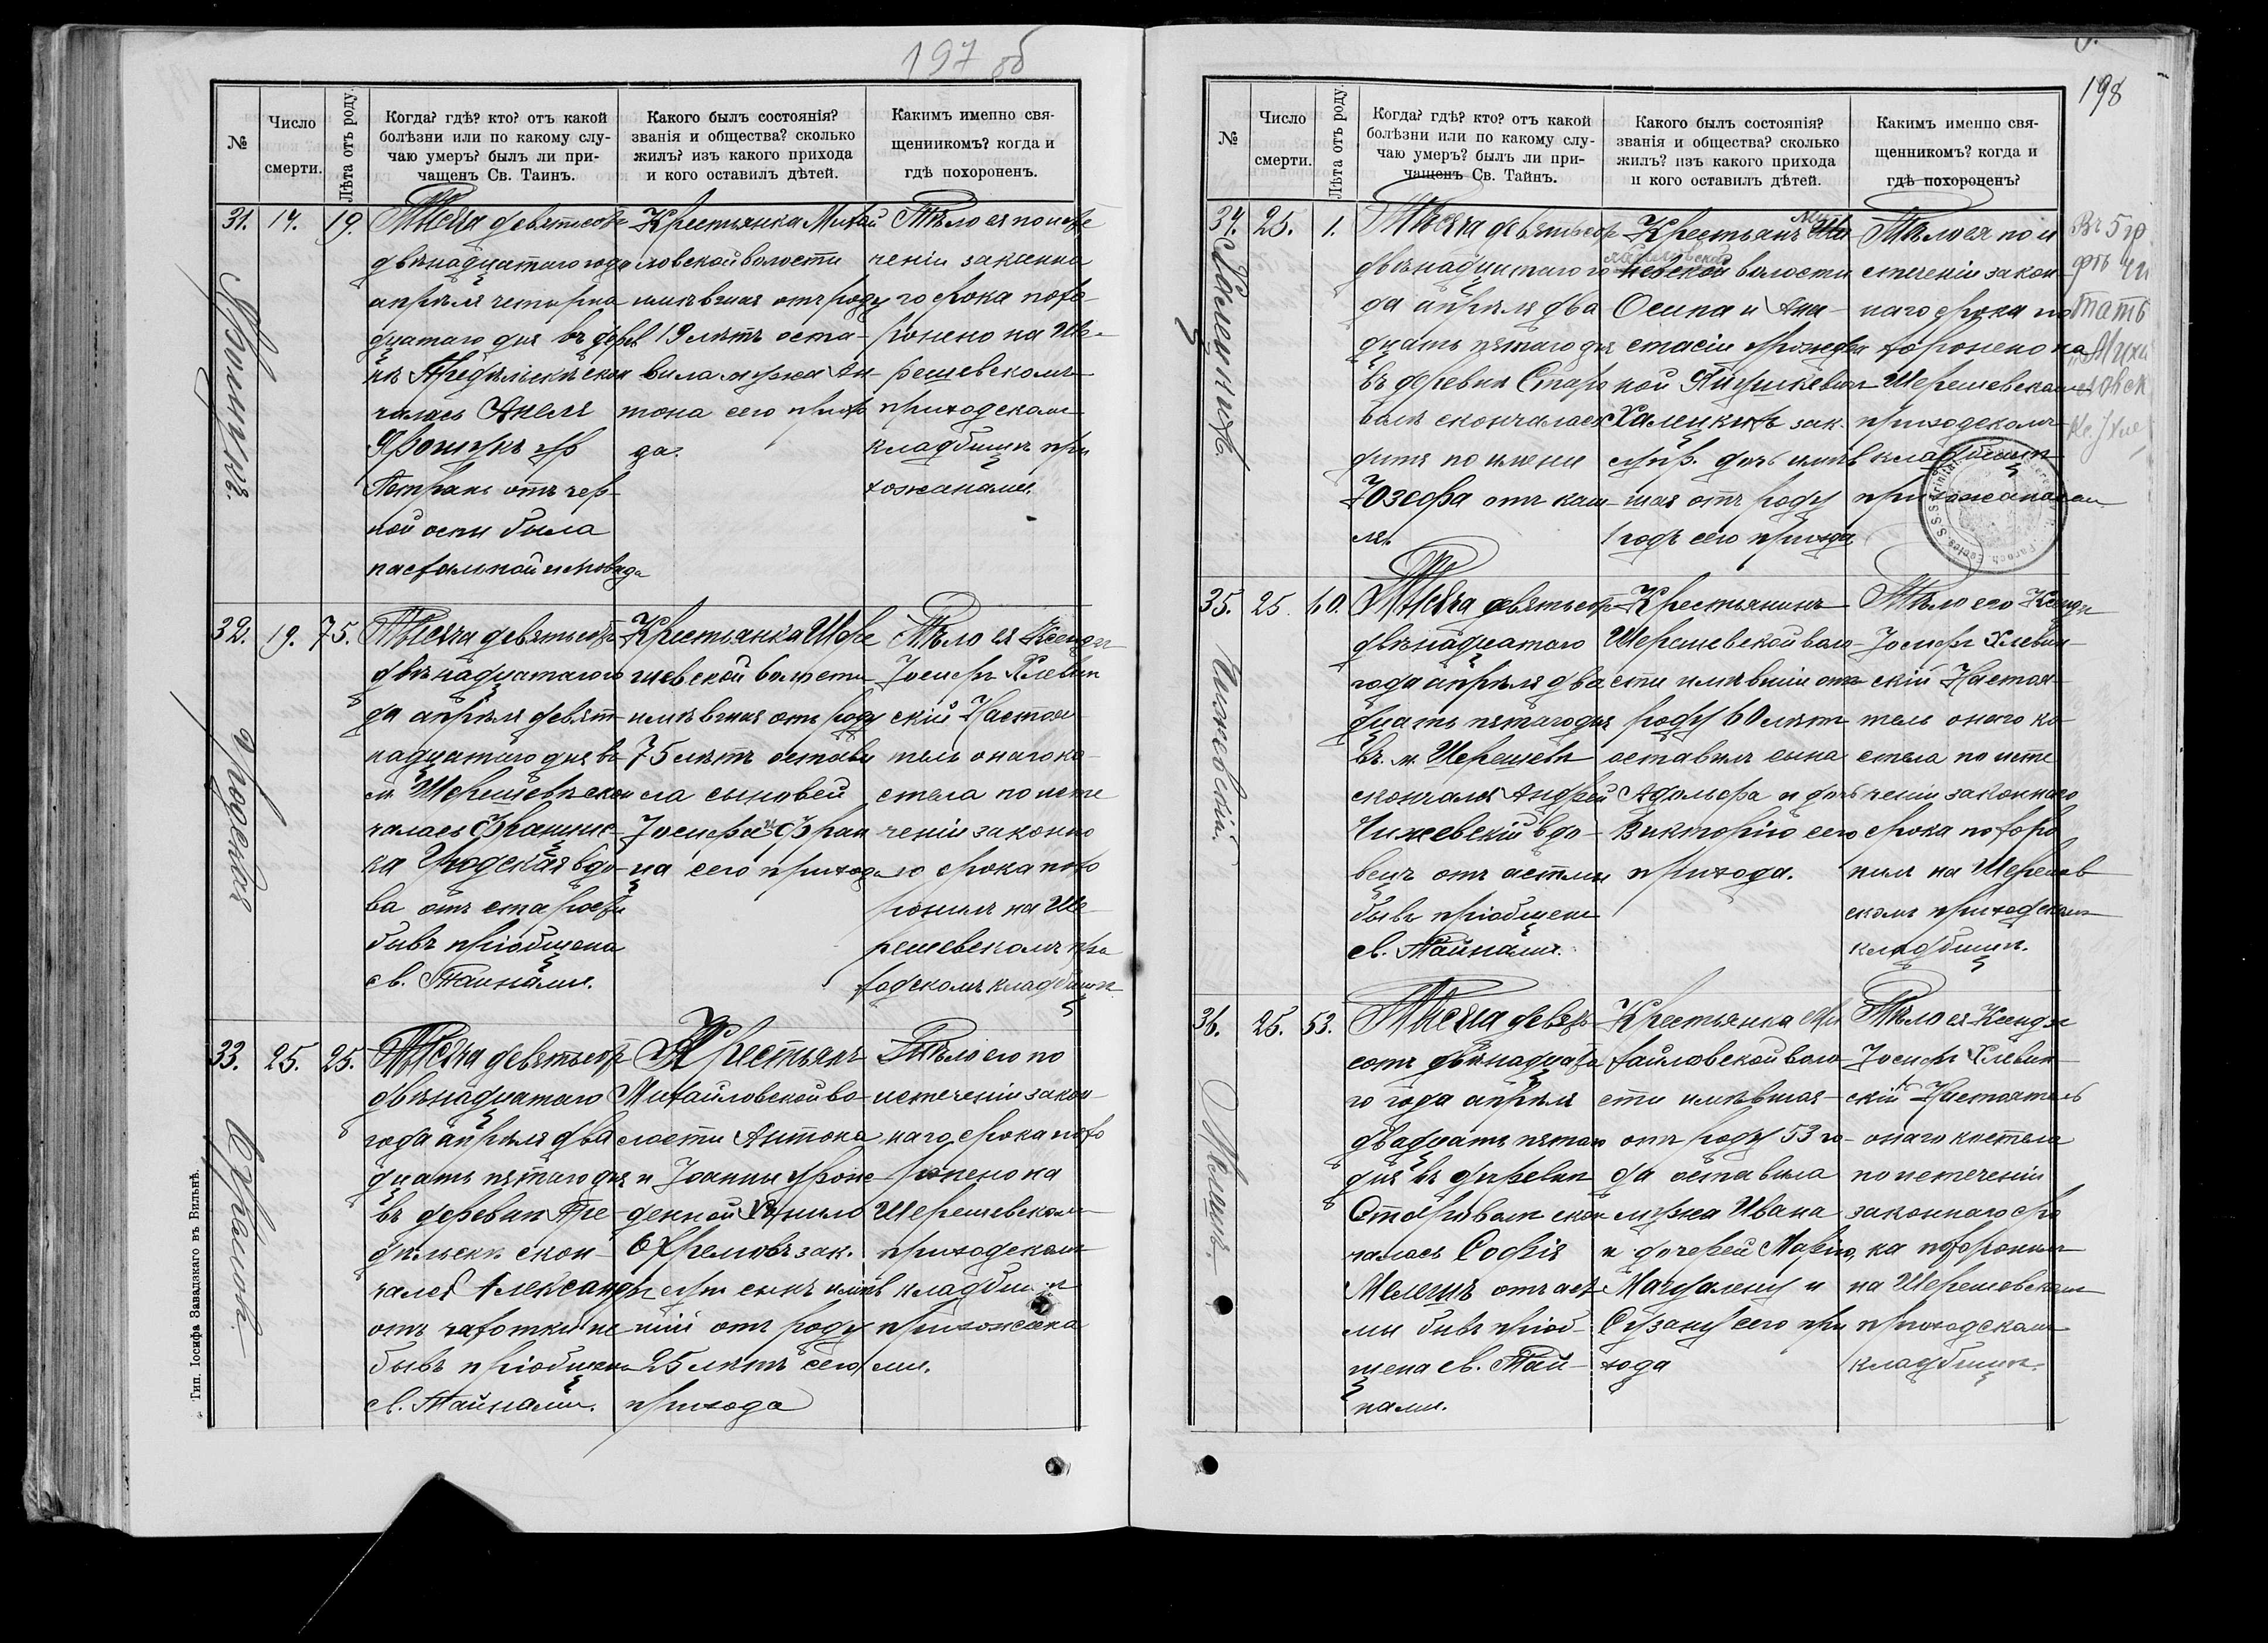 197 об
№
Число
смерти.
Лѣта отъ роду.
Когда? гдѣ? кто? отъ какой
болѣзни или по какому слу-
чаю умеръ? былъ ли при-
чащенъ Св. Таинъ.
Какого былъ состоянія?
званія и общества? сколько
жилъ? изъ какого прихода
и кого оставилъ дѣтей.
Какимъ именно свя-
щенникомъ? когда и
гдѣ похороненъ.
31.
14.
19.
Тысяча девятьсотъ
двѣнадцатаго года
апрѣля четырна
дцатаго дня въ дерев
скон
чалась Анеля
отъ чер-
ной оспы была
Крестьянка Михай
ловской волости
имѣвшая отъ роду
19 лѣтъ оста-
вила мужа Ан
тона сего прихо
да.
Тѣло ея по исте
ченіи законна
го срока похо-
ронено на Ше-
решевскомъ
приходскомъ
кладбищѣ при
хожанами.
32.
19.
75.
Тысяча девятьсотъ
двѣнадцатаго го
да апрѣля девят-
надцатаго дня въ
м. Шерешевѣ скон
чалась Францис-
ка Гродская вдо-
ва отъ старости
бывъ пріобщена
св. Тайнами.
Гродская
Крестьянка Шере
шевской волости
имѣвшая отъ роду
75 лѣтъ остави
ла сыновей
Іосифа и Фран
ца сего прихода
Тѣло ея Ксендзъ
Іосифъ Хлевин
скій Настоя-
тель онаго ко-
стела по исте
ченіи законна
го срока похо
ронилъ на Ше-
решевскомъ при
ходскомъ кладбищѣ
33.
25.
25.
Тысяча девятьсотъ
двѣнадцатаго
года апрѣля два
дцать пятаго дня
въ деревнѣ Пре-
дѣльскѣ скон-
чался Александръ
отъ чахотки не
бывъ пріобщенъ
св. Тайнами.
Крестьянъ
Михайловской во-
лости Антона
и Іоанны урож-
денной
зак.
супр. сынъ имѣв
шій отъ роду
25 лѣтъ сего
прихода
Тѣло его по
истеченіи закон-
наго срока похо
ронено на
Шерешевскомъ
приходскомъ
кладбищѣ
прихожана
ми.
Тип. Іосифа Завадзкаго въ Вильнѣ.
198
№
Число
смерти.
Лѣта отъ роду.
Когда? гдѣ? кто? отъ какой
болѣзни или по какому слу-
чаю умеръ? былъ ли при-
чащенъ Св. Тайнъ.
Какого былъ состоянія?
званія и общества? сколько
жилъ? изъ какого прихода
и кого оставилъ дѣтей.
Какимъ именно свя-
щенникомъ? когда и
гдѣ похороненъ?
34.
25.
1.
Тысяча девятьсотъ
двѣнадцатаго го
да апрѣля два
дцать пятаго дня
въ деревнѣ Старо
волѣ скончалась
дитя по имени
Юзефа отъ каш-
ля.
Крестьянъ
волости
Осипа и Ана-
стасіи урожден
ной
зак.
супр. дочь имѣв
шая отъ роду
1 годъ сего прихода
Тѣло ея по и
стеченіи закон
наго срока по
хоронено на
Шерешевскомъ
приходскомъ
кладбищѣ
прихожанами
Въ 5 гр
фѣ чи
тать
Михай
ловск
35.
25.
60.
Чижевскій.
Тысяча девятьсотъ
двѣнадцатаго
года апрѣля два
дцать пятаго дня
въ м. Шерешевѣ
скончался Андрей
Чижевскій вдо-
вецъ отъ астмы
бывъ пріобщенъ
св. Тайнами.
Крестьянинъ
Шерешевской воло-
сти имѣвшій отъ
роду 60 лѣтъ
оставилъ сына
Адольфа и дочь
Викторію сего
прихода.
Тѣло его Ксендзъ
Іосифъ Хлевин-
скій Настоя-
тель онаго ко-
стела по исте
ченіи законнаго
срока похоро
нилъ на Шерешев
скомъ приходскомъ
кладбищѣ.
36.
25.
53.
Мелешъ
Тысяча девять-
сотъ двѣнадцата
го года апрѣля
двадцать пятаго
дня въ деревнѣ
Староволѣ скон
чалась Софія
Мелешъ отъ аст-
мы бывъ пріоб-
щена св. Тай-
нами.
Крестьянка Ми
хайловской воло
сти имѣвшая
отъ роду 53 го-
да оставила
мужа Ивана
и дочерей Марію,
Магдалену и
Сузану сего при
хода
Тѣло ея Ксендзъ
Іосифъ Хлевин
скій Настоятель
онаго костела
по истеченіи
законнаго сро
ка похоронилъ
на Шерешевскомъ
приходскомъ
кладбищѣ.